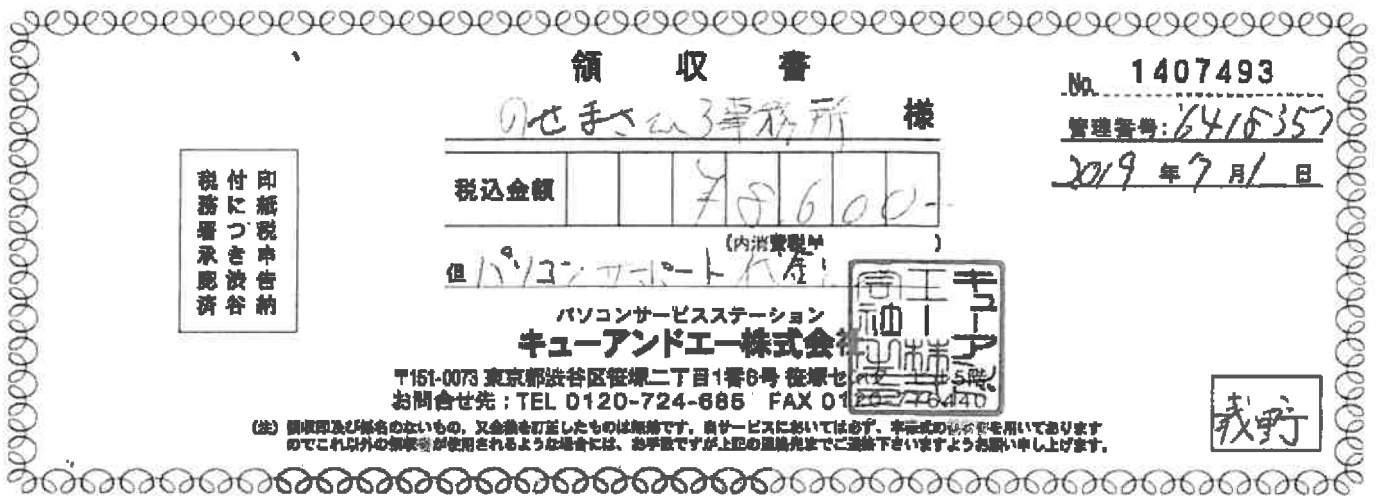 領収書
No. 1407493
のせまさひろ事務所 様
管理番号:6418357
2019年7月1日
税込金額 ¥78600-
(内消費税¥ )
但 パソコンサポート代金
印紙税申告納
付につき渋谷
税務署承認済
パソコンサービスステーション
キューアンドエー株式会社
〒151-0073 東京都渋谷区笹塚二丁目1番6号 笹塚セ 5階
お問合せ先:TEL 0120-724-685 FAX 0120-776440
(注) 領収印及び係名のないもの、又金額を訂正したものは無効です。当サービスにおいては必ず、本様式の領収書を用いております
のでこれ以外の領収書が使用されるような場合には、お手数ですが上記の連絡先までご連絡下さいますようお願い申し上げます。